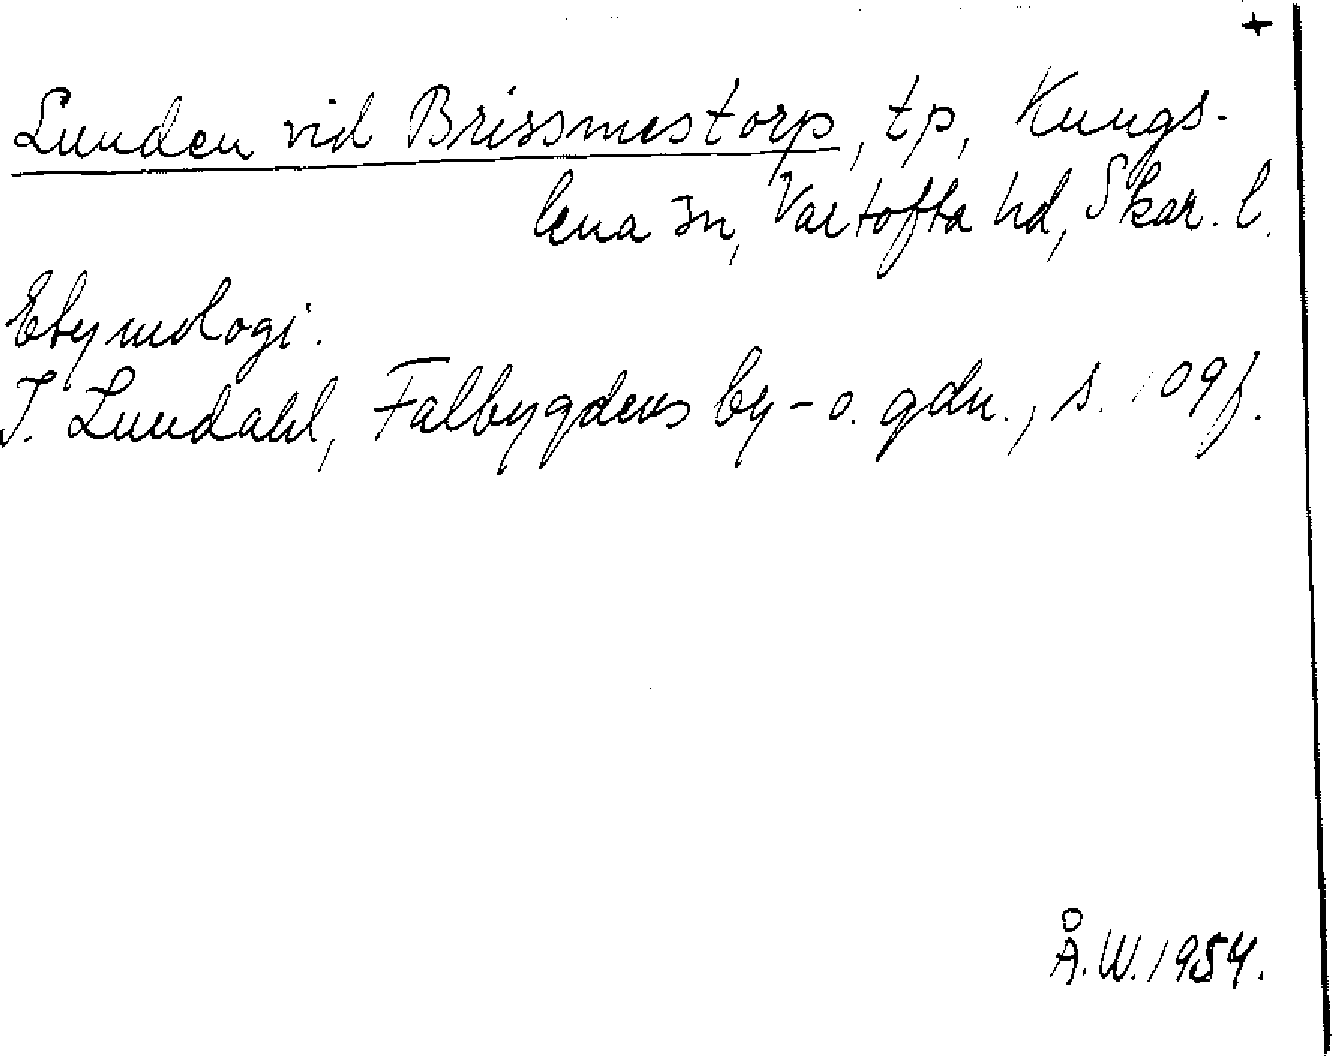 +
Lunden vid Brissmestorp, tp, Kungs-
lena sn, Vartofta hd, Skar. l.
Etymologi.
I. Lundahl, Falbygdens by- o. gdn., s. 109f.
Å.W. 1954.